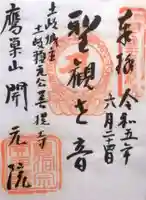 奉拝
令和五年
六月二十四日
聖観世音
土岐城主
土岐頼元公菩提寺
鷹巣山 開元院